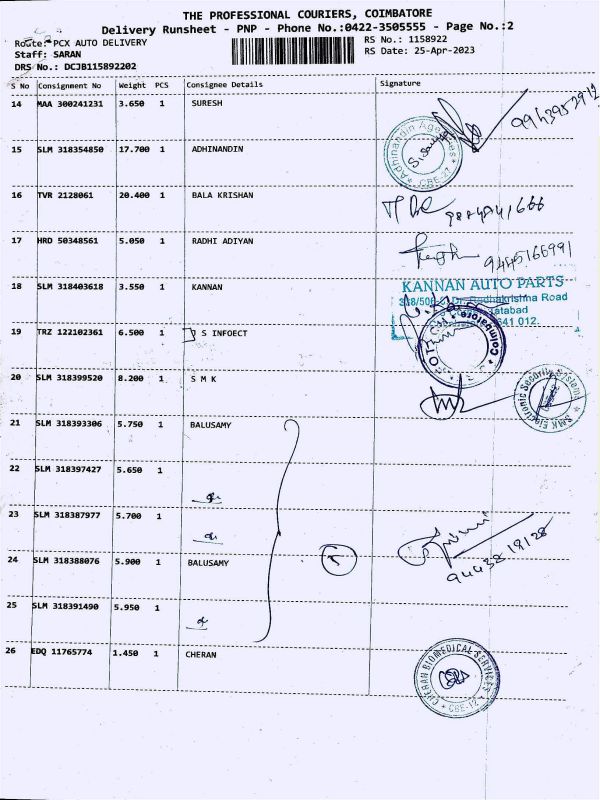 THE PROFESSIONAL COURIERS, COIMBATORE
Delivery Runsheet - PNP - Phone No.:0422-3505555 - Page No.:2
Route: PCX AUTO DELIVERY
RS No.: 1158922
Staff: SARAN
RS Date: 25-Apr-2023
DRS No.: DCJB115892202
S No Consignment No Weight PCS Consignee Details Signature
14 MAA 300241231 3.650 1 SURESH
15 SLM 318354850 17.700 1 ADHINANDIN
Adhinandin Agencies * CBE-27 *
16 TVR 2128061 20.400 1 BALA KRISHAN
17 HRD 50348561 5.050 1 RADHI ADIYAN
9445166991
18 SLM 318403618 3.550 1 KANNAN
KANNAN AUTO PARTS
Dr. Radhakrishna Road
Tatabad
641 012.
19 TRZ 122102361 6.500 1 S INFOECT
Coimbatore
20 SLM 318399520 8.200 1 S M K
SMK Electronic Security Systems
21 SLM 318393306 5.750 1 BALUSAMY
22 SLM 318397427 5.650 1
23 SLM 318387977 5.700 1
24 SLM 318388076 5.900 1 BALUSAMY
9443819128
25 SLM 318391490 5.950 1
26 EDQ 11765774 1.450 1 CHERAN
CHERAN BIOMEDICAL SERVICES * CBE-12 *